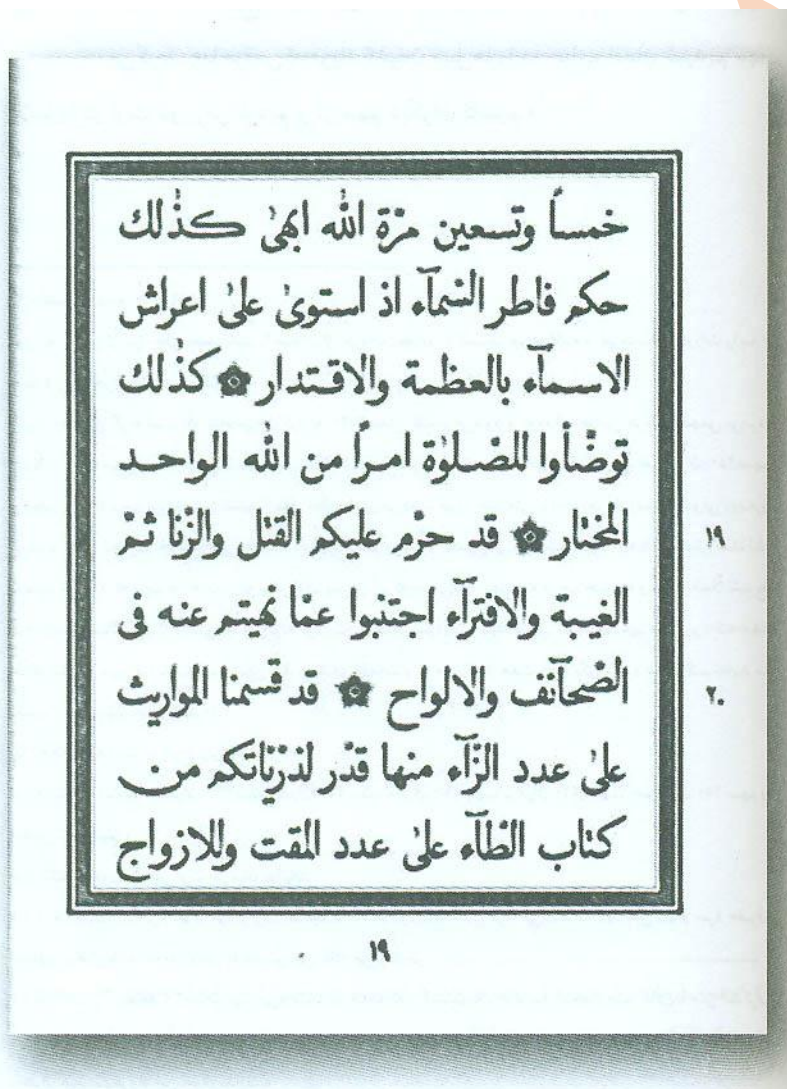 خمساً وتسعين مرّة الله ابهىٰ كذٰلك
حكم فاطر السّمآء اذ استوىٰ علىٰ اعراش
الاسمآء بالعظمة والاقتدار ۞ كذٰلك
توضّأوا للصّلوٰة امراً من الله الواحد
المختار ۞ قد حرّم عليكم القتل والزّنا ثمّ
١٩
الغيبة والافترآء اجتنبوا عمّا نهيتم عنه فى
الصّحآئف والالواح ۞ قد قسمنا المواريث
٢٠
علىٰ عدد الزّآء منها قدّر لذرّيّاتكم من
كتاب الطّآء علىٰ عدد المقت وللازواج
١٩